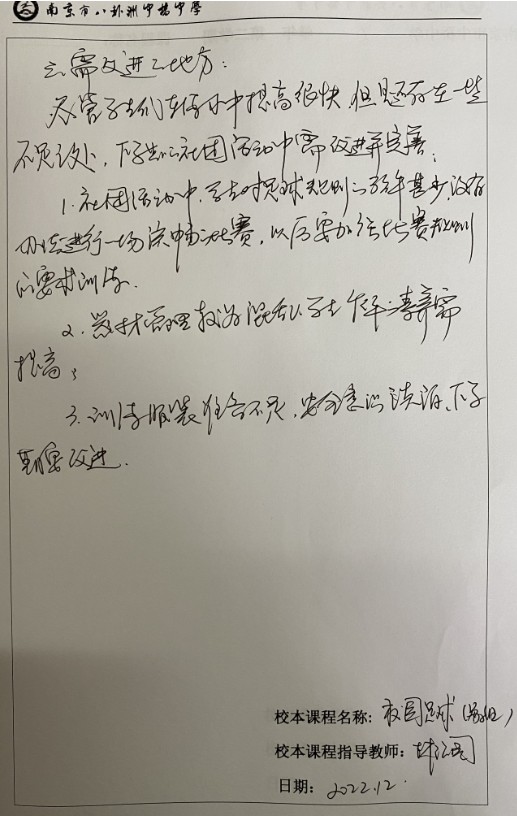 南京市八卦洲中桥中学
三、需改进之地方:
尽管学生们在活动中提高很快,但是还存在一些
不足之处,下学期的社团活动中需改进并完善:
1. 社团活动中,学生对足球规则了解甚少,没有
办法进行一场完整的比赛,以后要加强比赛规则
的要求训练.
2. 器材管理较为混乱,学生 素养需
提高;
3. 训练服装准备不足,安全意识淡泊,下学
期需改进.
校本课程名称: 校园足球(男组)
校本课程指导教师:
日期: 2022.12.